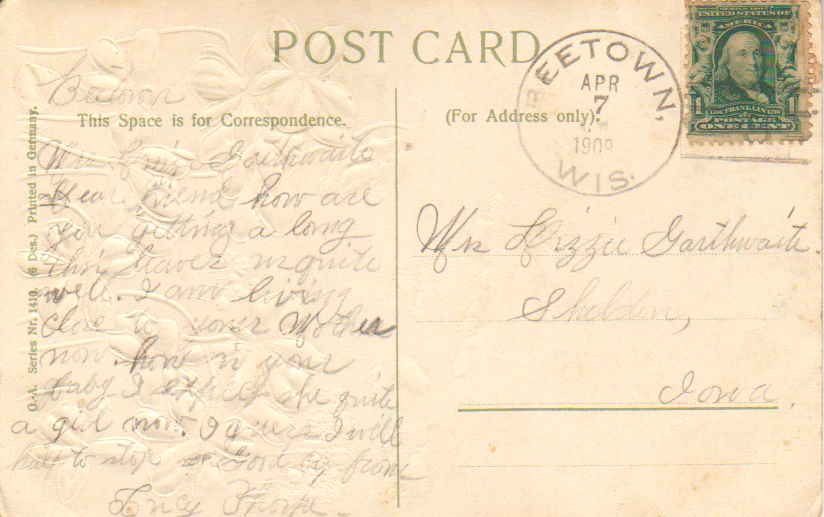 POST CARD
Beetown
This Space is for Correspondence.
(For Address only).
BEETOWN,
APR
7
1909
WIS.
UNITED STATES OF
AMERICA
FRANKLIN
1 1
POSTAGE
ONE CENT
O.-A. Series Nr. 1410. (6 Des.) Printed in Germany.
Mrs Garthwaite
Dear friend how are
you getting a long
this leaves us quite
well. I am living
close to your Mother
now. how is your
baby I expect she quite
a girl now. I guess I will
half to stop Good by from
Lucy
Mrs Lizzie Garthwaite.
Sheldon,
Iowa.